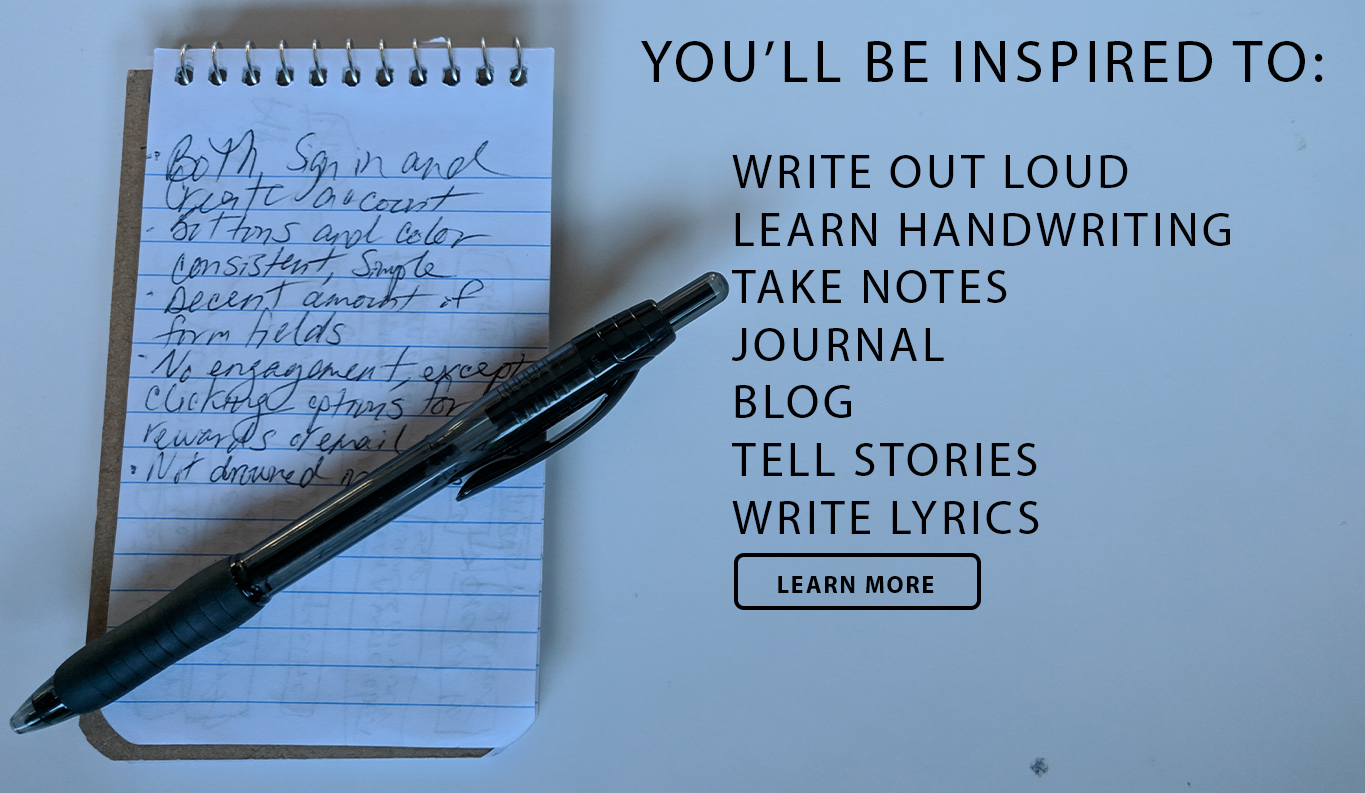 • Both, Sign in and
Create account
• Buttons and color
consistent, Simple
• Decent amount of
form fields
• No engagement, except
clicking options for
rewards
• Not drowned
YOU’LL BE INSPIRED TO:
WRITE OUT LOUD
LEARN HANDWRITING
TAKE NOTES
JOURNAL
BLOG
TELL STORIES
WRITE LYRICS
LEARN MORE